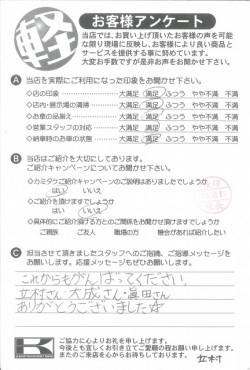 軽
お客様アンケート
当店では、お買い上げ頂いたお客様の声を可能
な限り現場に反映し、お客様により良い商品と
サービスを提供する事に努めています。
大変お手数ですが是非お声をお聞かせ下さい。
A 当店を実際にご利用になった印象をお聞かせ下さい。
◇店の印象・・・・・・・・ 大満足 満足 ふつう やや不満 不満
◇店内・展示場の清掃・・・ 大満足 満足 ふつう やや不満 不満
◇お車の品揃え・・・・・・ 大満足 満足 ふつう やや不満 不満
◇営業スタッフの対応・・・ 大満足 満足 ふつう やや不満 不満
◇納車時のお車の状態・・・ 大満足 満足 ふつう やや不満 不満
B 当店はご紹介を大切にしております。
ご紹介キャンペーンについてお聞かせ下さい。
◇カミタケご紹介キャンペーンのご説明はありましたでしょうか
はい いいえ
◇ご紹介を頂けますでしょうか
はい いいえ
◇具体的にご紹介頂ける方とのご関係をお聞かせ頂けますでしょうか
ご親族 ご友人 職場の方 機会があれば紹介したい
C 担当させて頂きましたスタッフへのご指摘、ご指導メッセージを
お願いします。応援メッセージもぜひお願いします。
これからもがんばってください。
立村さん 大成さん・眞田さん
ありがとうございました☆
K
ご協力に心よりお礼を申し上げます。
今後とも宜しくお引き立てご愛顧の程お願い申し上げます。
またのご来店を心からお待ちしております。
立村